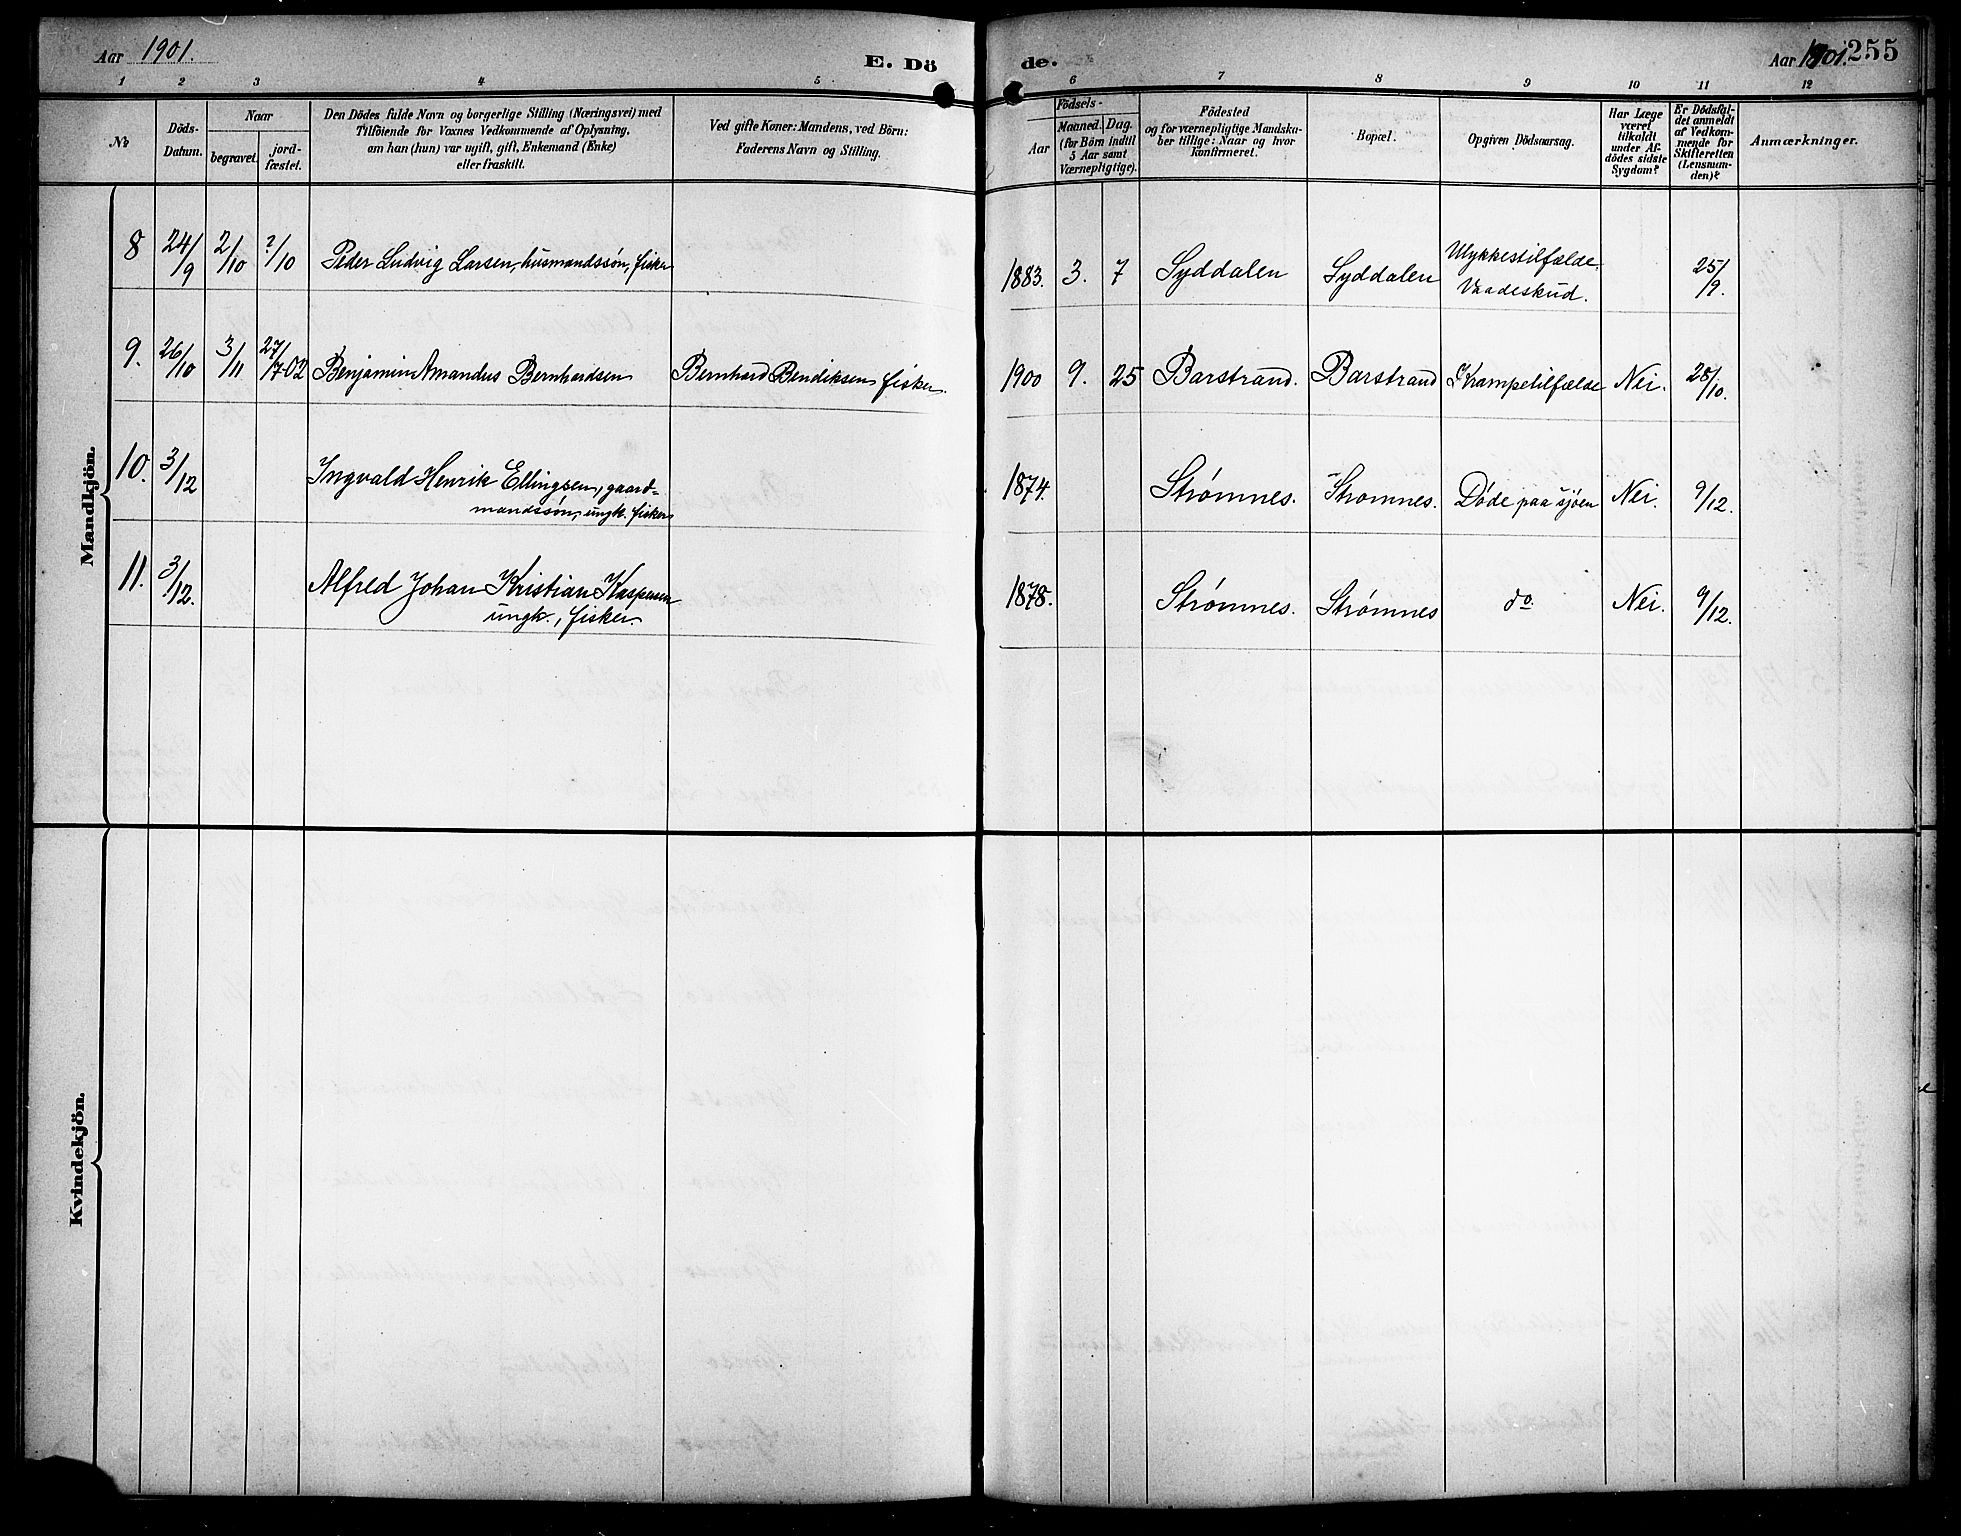 Aar 1901. E. Dö de. Aar 1901. 255
1 2 3 4 5 6 7 8 9 10 11 12
№
Döds-
Datum.
Naar
begravet.
jord-
fæstet.
Den Dödes fulde Navn og borgerlige Stilling (Næringsvei) med
Tilföiende for Voxnes Vedkommende af Oplysning,
om han (hun) var ugift, gift, Enkemand (Enke)
eller fraskilt.
Ved gifte Koner: Mandens, ved Börn:
Faderens Navn og Stilling.
Födsels-
Aar
Maaned. Dag.
(for Börn indtil
5 Aar samt
Værnepligtige).
Födested
og for værnepligtige Mandska-
ber tillige: Naar og hvor
konfirmeret.
Bopæl.
Opgiven Dödsaarsag.
Har Læge
været
tilkaldt
under Af-
dödes sidste
Sygdom?
Er Dödsfal-
det anmeldt
af Vedkom-
mende for
Skifteretten
(Lensman-
den)?
Anmærkninger.
Mandkjön.
8 24/9 2/10 ?/10 Peder Ludvig Larsen, husmandssøn, fisker 1883. 3. 7 Syddalen Syddalen Ulykkestilfælde.
Vaadeskud. 25/9.
9. 26/10 3/11 27/7-02 Benjamin Amandus Bernhardsen Bernhard Bendiksen fisker. 1900 9. 25 Barstrand. Barstrand Krampetilfælde Nei. 28/10.
10. 3/12 Ingvald Henrik Ellingsen, gaard-
mandssøn, ungk. fisker 1874. Strømnes. Strømnes. Døde paa sjøen Nei. 9/12.
11. 3/12. Alfred Johan Kristian Kaspersen
ungk., fisker. 1878. Strømnes. Strømnes do. Nei. 9/12.
Kvindekjön.